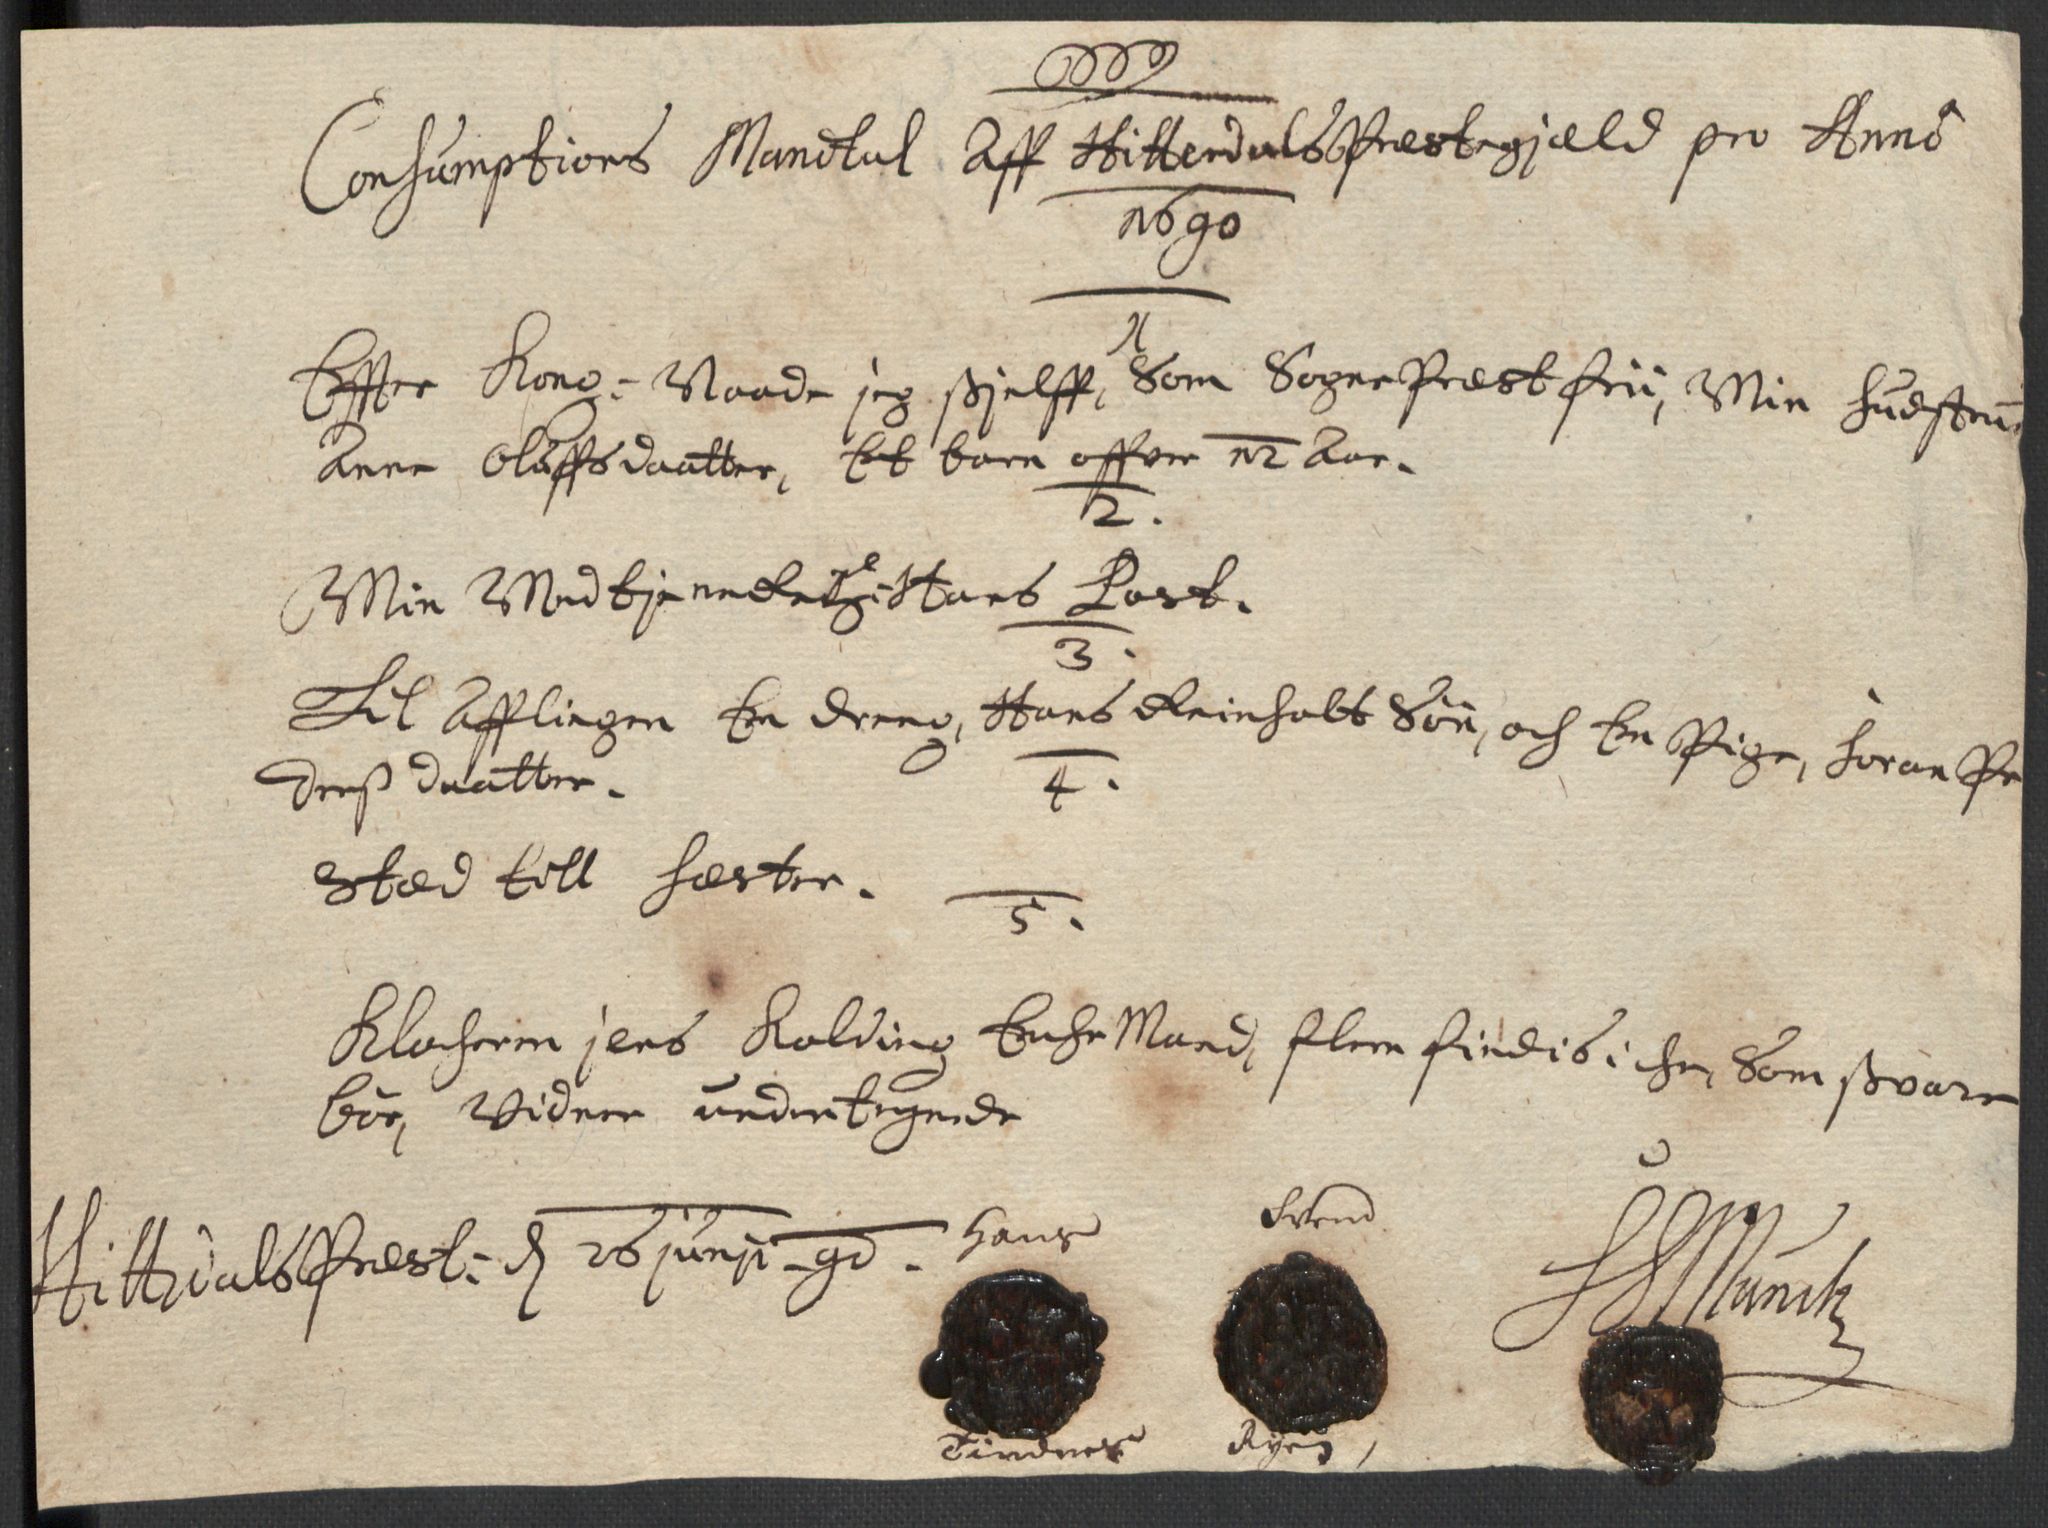 Consumptions Mandtal Aff HitterdalsPræstegjæld pro Anno
1690
1
Effter Kong: Naade jeg sjelff, Som SognePræst frii, Min hudstru
Anne Oluffsdaatter, Et barn offver 12 Aar.
2.
Min Medtjenere Hans Post.
3.
Til Afflingen En dreng, Hans Reinholts Søn, och En Pige, Joran Pe
derß daatter.
4.
Stæd till hæster.
5.
Klocheren jens Kolding Enche Mand, flere findis iche, Som ßvare
bør, Vidner undertegnede
HitterdalsPræst: d 26 junij -90.
Hans
Svend
Munck
Tindnes